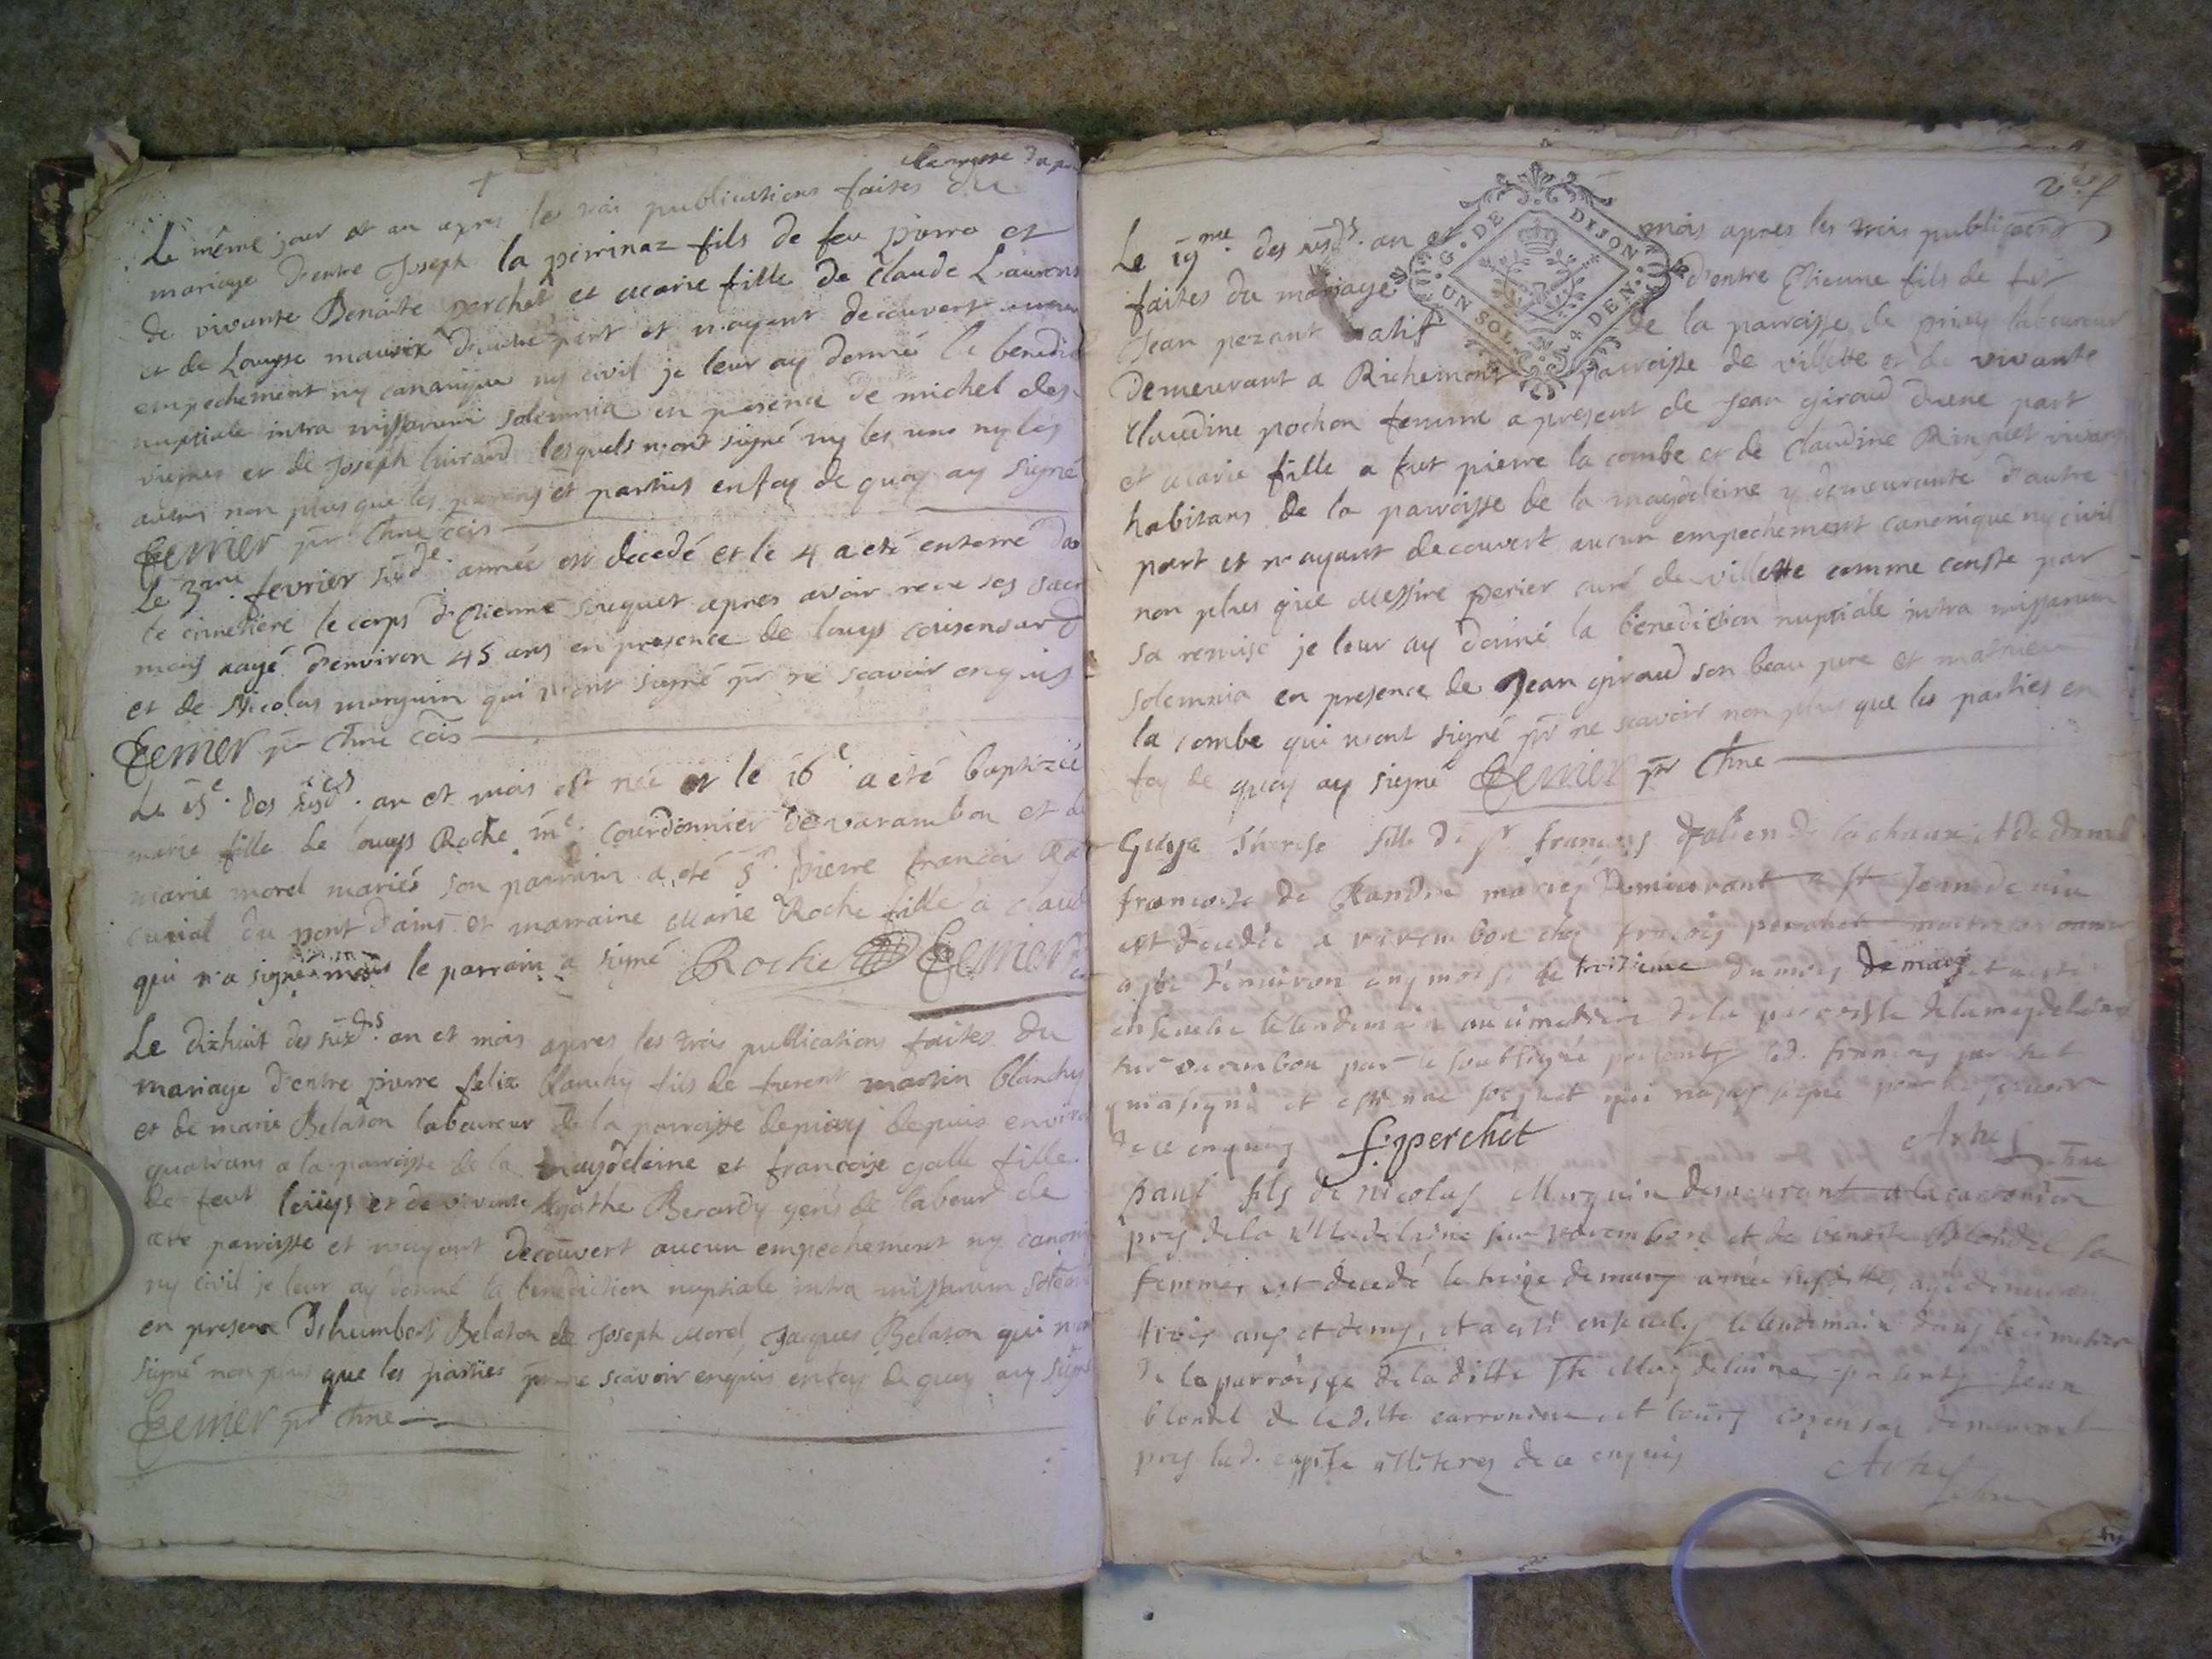 Le même jour et an apres les trois publications faites du
mariage d'entre Joseph la perrinaz fils de feu pierre et
de vivante Benoite perchet et marie fille de Claude Laurens
et de Louyse d'autre part et n'ayant decouvert aucun
empechement ny canonique ny civil je leur ay donné la benedic
nuptiale intra missarum solemnia en presence de michel des
vignes et de Joseph Guiraud lesquels n'ont signé ny les uns ny les
autres non plus que les parens et parties en foy de quoy ay signé
Perrier pr Chne
Le 3me fevrier susde année est decedé et le 4 a eté enterré da
le cimetiere le corps d'Etienne souquet apres avoir receu ses sacr
mens aagé d'environ 45 ans en presence de louys
et de Nicolas murguin qui n'ont signé pr ne scavoir enquis
Perrier pr Chne
Le 15e des susds an et mois est née et le 16e a eté baptizée
marie fille de louys Roche me Courdonnier de varambon et de
marie morel mariés son parrain a eté Sr pierre francois
curial du pont d'ains et marraine Marie Roche fille a Claude
qui n'a signé mais le parrain a signé Roche Perrier
Le dixhuit des susds an et mois apres les trois publications faites du
mariage d'entre pierre felix blanchy fils de furent martin blanchy
et de marie Belaton laboureur de la parroisse de priay depuis environ
quatrans a la parroisse de la magdeleine et francoise galle fille
de feut louys et de vivante Agathe Berardy gens de labeur de
cette parroisse et n'ayant decouvert aucun empechement ny canoni
ny civil je leur ay donné la benediction nuptiale intra missarum solem
en presence d'humbert Belaton de Joseph Morel, Jacques Belaton qui n'on
signé non plus que les parties pr ne scavoir enquis en foy de quoy ay signé
Perrier pr Chne
G. DE DIJON
UN SOL 4 DEN.
Le 19me des susds an et mois apres les trois publicaons
faites du mariage d'entre Etienne fils de fut
Jean pezant natif de la parroisse de priay laboureur
demeurant a Richemont parroisse de villette et de vivante
Claudine pochon femme a present de Jean giraud d'une part
et marie fille a fut pierre la combe et de Claudine Rinquet vivans
habitans de la parroisse de la magdeleine y demeurante d'autre
part et n'ayant decouvert aucun empechement canonique ny civil
non plus que Messire perier curé de villette comme conste par
sa remise je leur ay donné la benediction nuptiale intra missarum
solemnia en presence de Jean giraud son beau pere et mathieu
la combe qui n'ont signé pr ne scavoir non plus que les parties en
foy de quoy ay signé Perrier pr Chne
Therese fille de Sr francois de la chaux et de dame
francoise de mariez demeurant a St Jean de
est decedée a varembon chez francois perchet
agée d'environ cinq mois, le troisieme du mois de mars et a esté
ensevelie le lendemain au cimetiere de la parroisse de la magdeleine
sur varembon par le soubsigné presents led. francois perchet
qui a signé et estienne socquet qui n'a pas signé pour ne scavoir
de ce enquis f. perchet Chne
paul fils de nicolas Murguin demeurant a la carroniere
pres de la Madelaine sur varembon et de benoite Blondel sa
femme, est decedé le treize de mars année susditte, agé d'environ
trois ans et demy, et a esté ensevely le lendemain dans le cimetiere
de la parroisse de la ditte Ste Magdelaine, presents Jean
blondel de laditte carroniere, et louis demeurant
pres lad. eglise illiteres de ce enquis